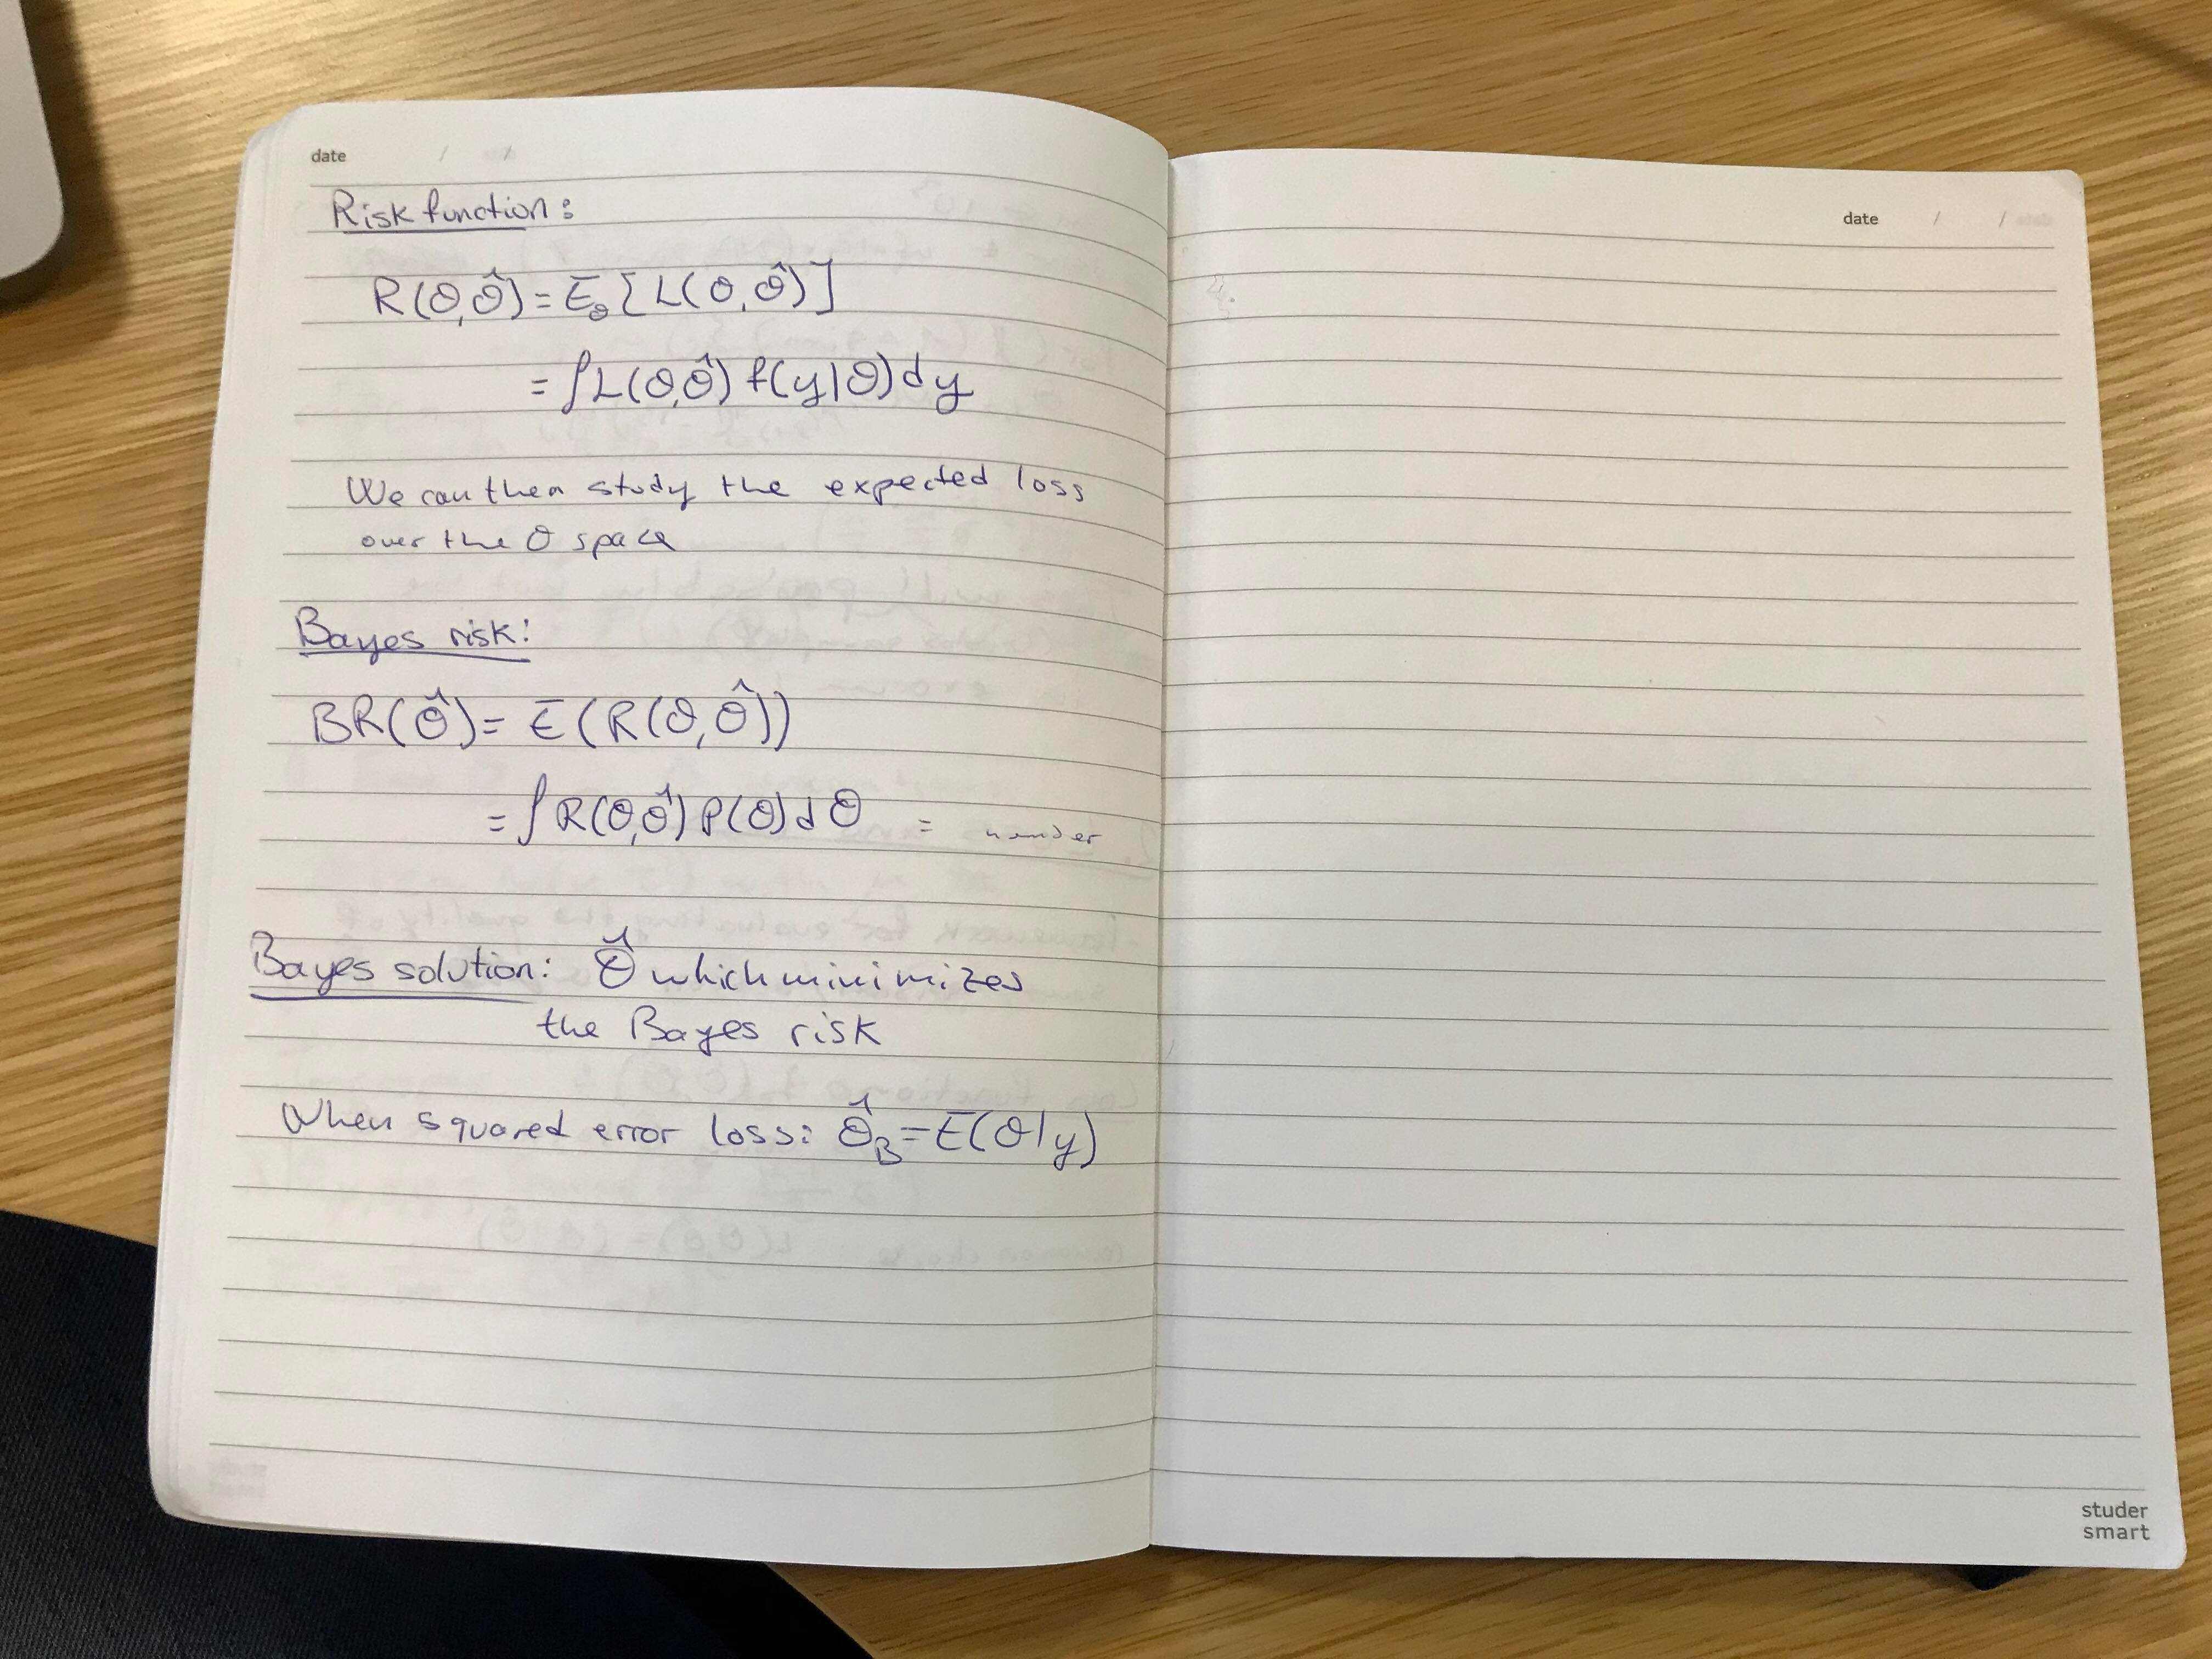 date / /
Risk function:
R(θ,θ̂) = E_θ [L(θ,θ̂)]
= ∫L(θ,θ̂) f(y|θ)dy
We can then study the expected loss
over the θ space
Bayes risk:
BR(θ̂) = E(R(θ,θ̂))
= ∫R(θ,θ̂) P(θ)dθ = number
Bayes solution: θ̂ which minimizes
the Bayes risk
When squared error loss: θ̂_B = E(θ|y)
date / /
studer
smart